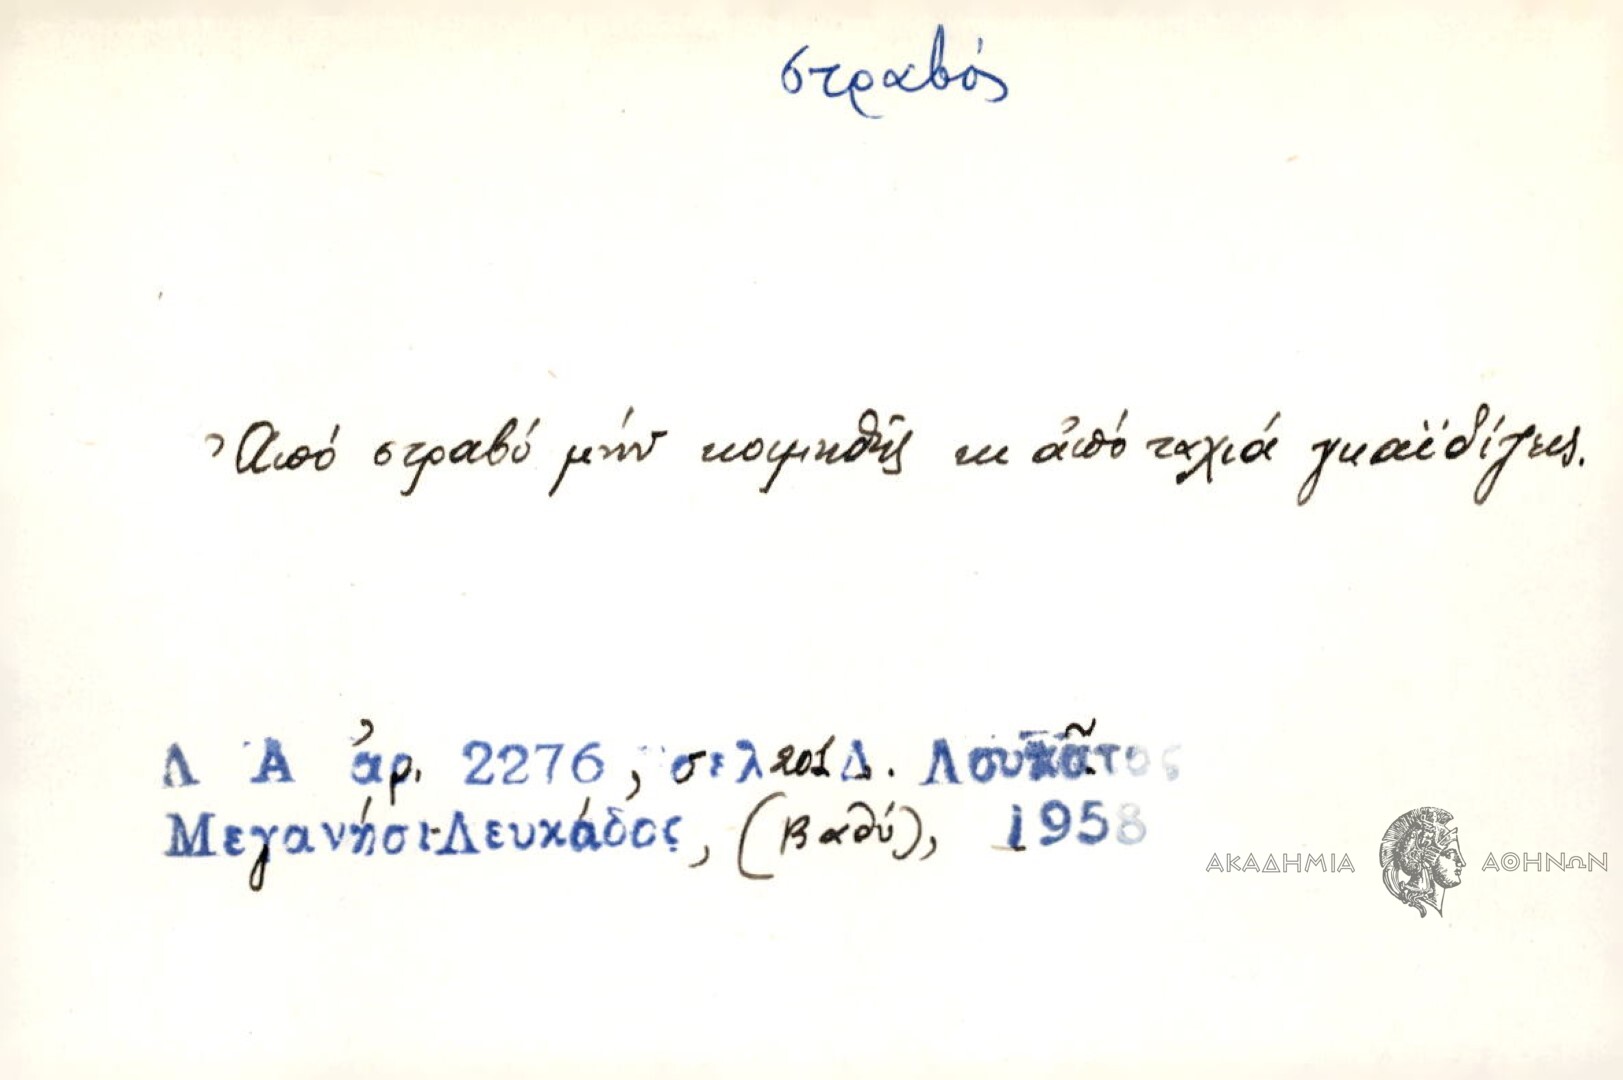 στραβός
Ἀπό στραβό μήν κοιμηθῆς κι ἀπό ταχιά γκαϊδίζεις.
Λ Α ἀρ. 2276, σελ 201 Δ. Λουκᾶτος
Μεγανήσι-Λευκάδος, (Βαθύ), 1958
ΑΚΑΔΗΜΙΑ ΑΘΗΝΩΝ